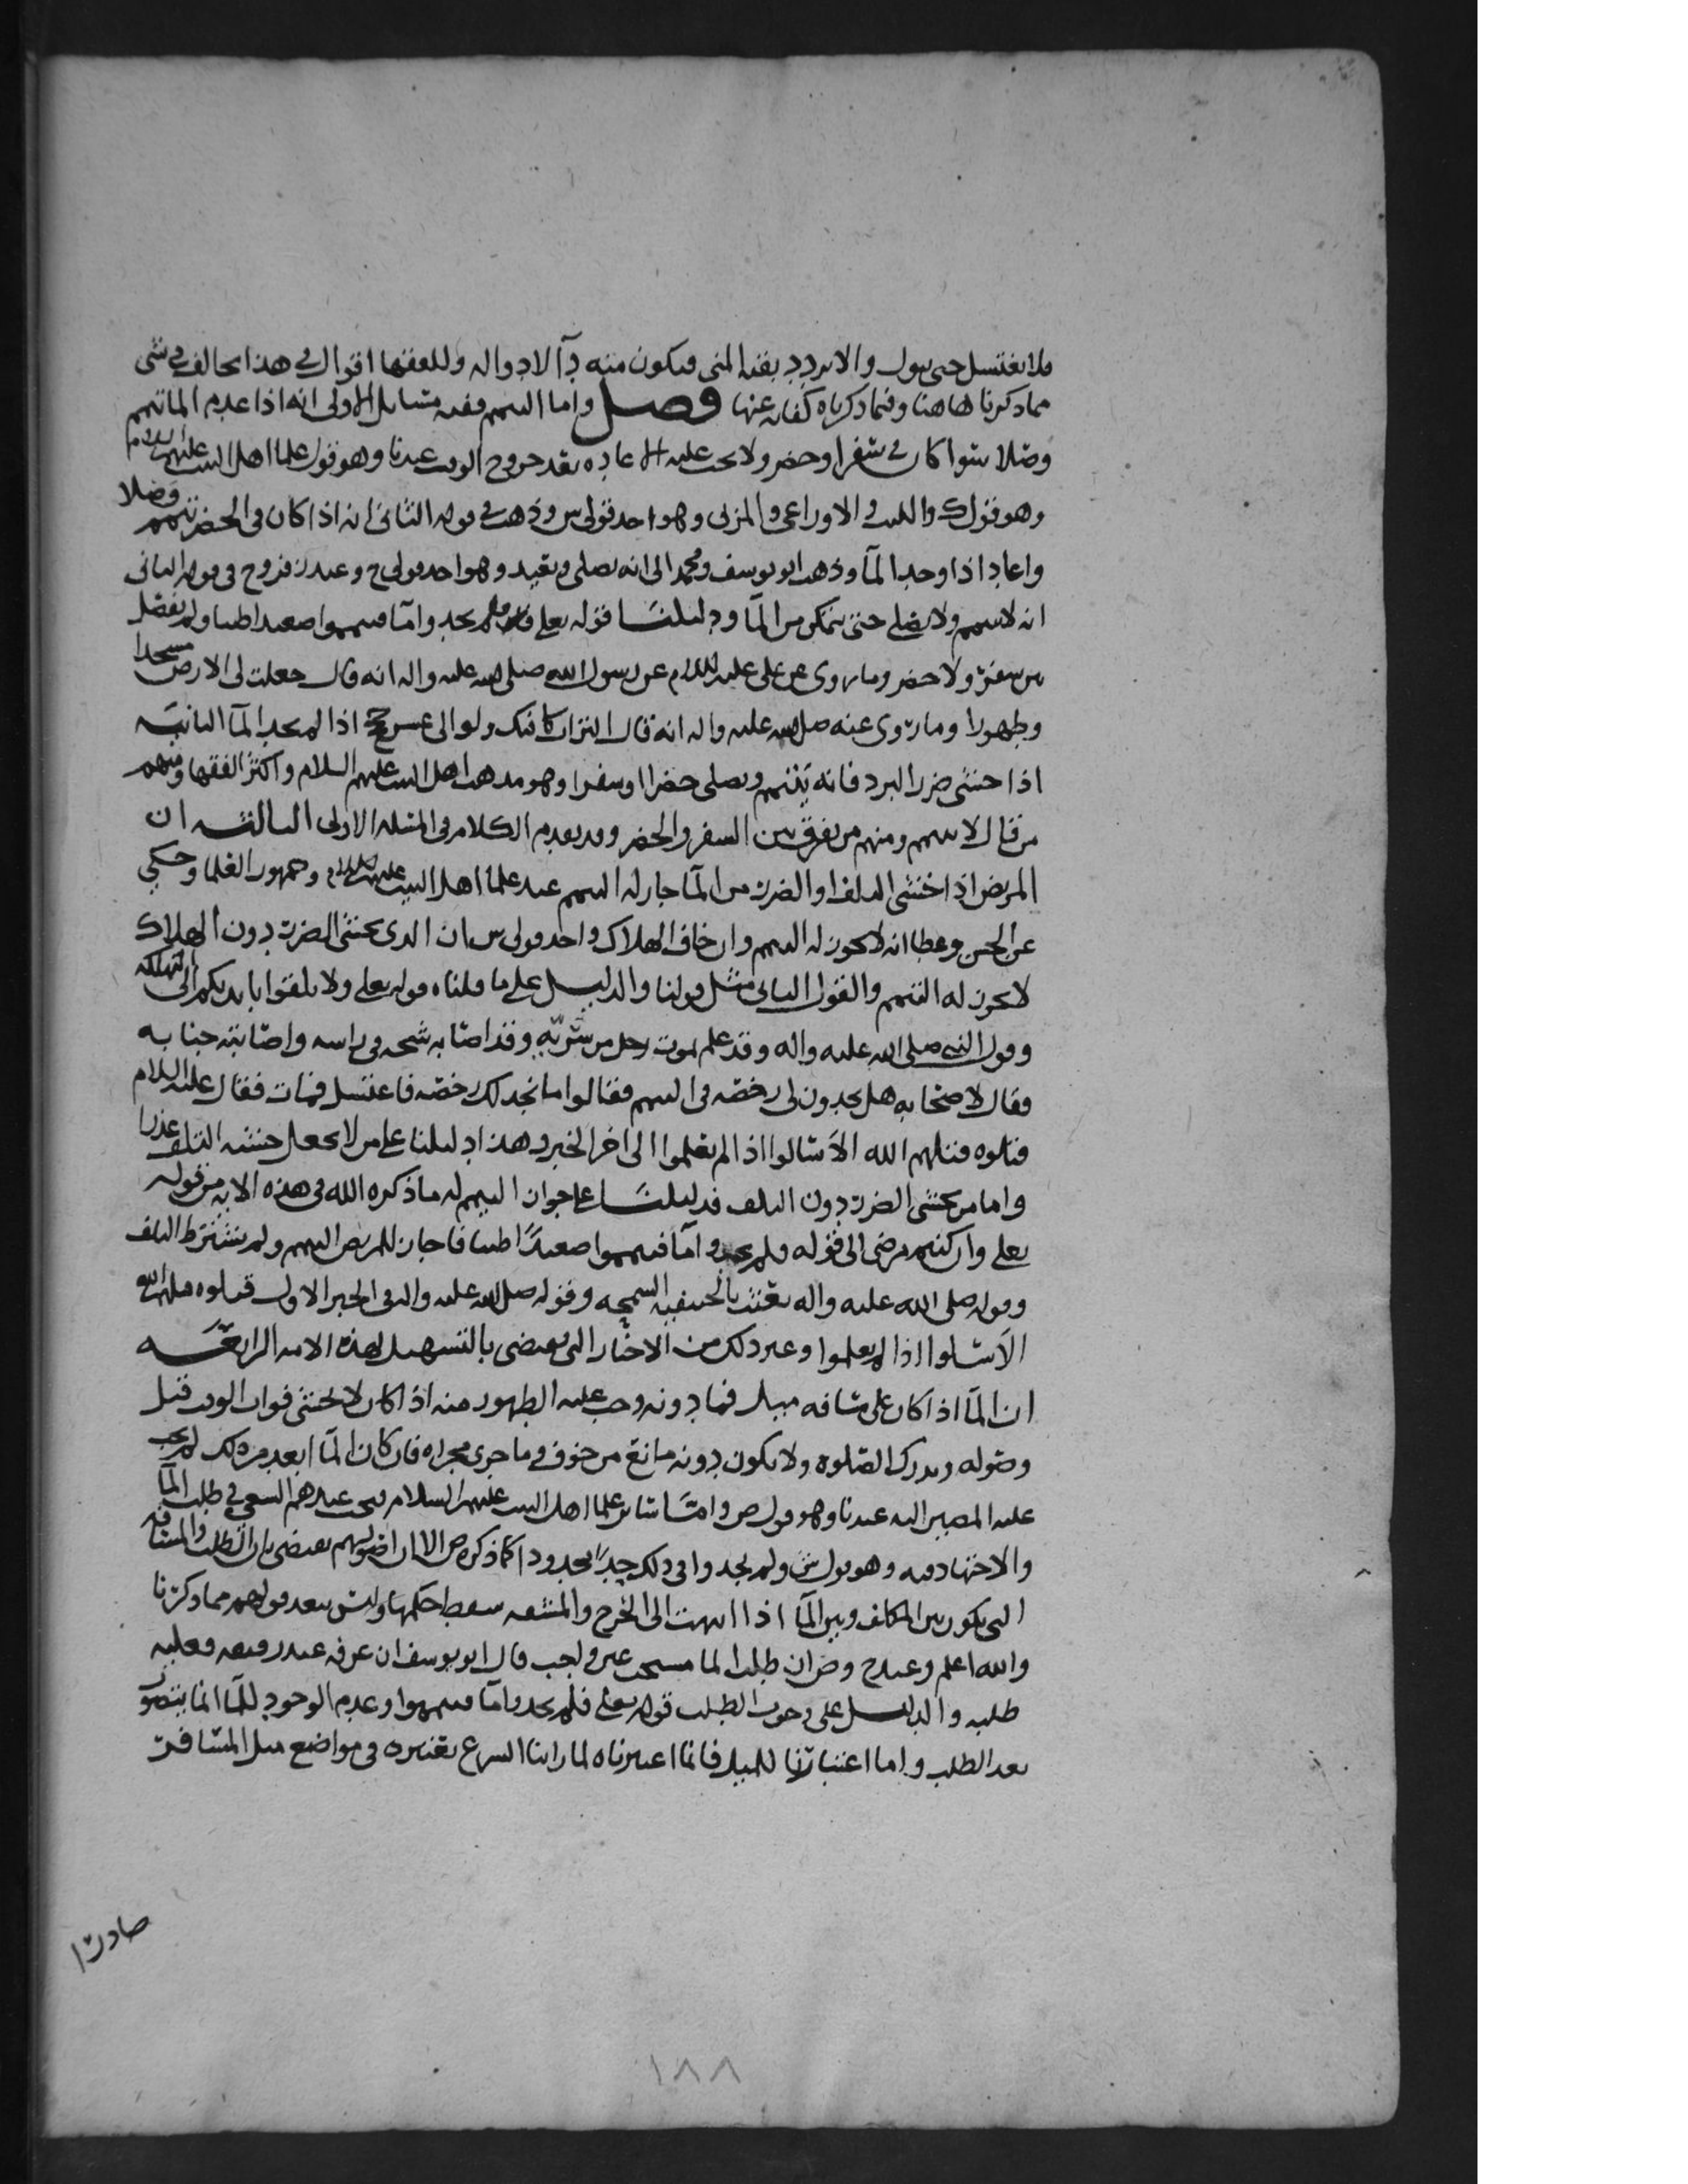 فلا يغتسل حتى يبول والا تردد بقية المني فيكون منه دآ لا دوا له وللفقها اقوال في هذا تخالف في شي
مما ذكرنا هاهنا وفيما ذكرناه كفاية عنها فصل واما التيمم ففيه مسايل الاولى انه اذا عدم الما تيمم
وصلا سوا كان في سفر او حضر ولا يجب عليه الاعاده بعد خروج الوقت عندنا وهو قول علما اهل البيت عليهم السلام
وهو قول ك والليث والاوزاعي والمزني وهو احد قولي س وذهب في قوله الثاني انه اذا كان في الحضر تيمم وصلا
واعاد اذا وجد المآ وذهب ابو يوسف ومحمد الى انه يصلي ويعيد وهو احد قولي ح وعند زفر وح في قوله الثاني
انه لا يتيمم ولا يصلي حتى يتمكن من المآ ودليلنا قوله تعلى فلم تجدوا مآ فتيمموا صعيدا طيبا ولم يفصل
بين سفر ولا حضر وما روي عن علي عليه السلام عن رسول الله صلى الله عليه واله انه قال جعلت لي الارض مسجدا
وطهورا وما روي عنه صلى الله عليه واله انه قال التراب كافيك ولو الى عشر حجج اذا لم تجد المآ الثانية
اذا خشي ضرر البرد فانه يتيمم ويصلي حضرا او سفرا وهو مذهب اهل البيت عليهم السلام واكثر الفقها ومنهم
من قال لا يتيمم ومنهم من يفرق بين السفر والحضر وقد تقدم الكلام في المسله الاولى الثالثة ان
المريض اذا خشي التلف او الضرر من المآ جاز له التيمم عند علما اهل البيت عليهم السلام وجمهور العلما وحكي
عن الحسن وعطا انه لا يجوز له التيمم وان خاف الهلاك واحد قولي س ان الذي يخشى الضرر دون الهلاك
لا يجوز له التيمم والقول الثاني مثل قولنا والدليل على ما قلناه قوله تعلى ولا تلقوا بايديكم الى التهلكه
وقول النبي صلى الله عليه واله وقد علم بموت رجل من سريّه وقد اصابه شجه في راسه واصابته جنابه
فقال لاصحابه هل تجدون لي رخصه في التيمم فقالوا ما نجد لك رخصه فاغتسل فمات فقال عليه السلام
قتلوه قتلهم الله الا سالوا اذا لم يعلموا الى اخر الخبر وهذا دليلنا على من لا يجعل خشية التلف عذرا
واما من يخشى الضرر دون التلف فدليلنا على جواز التيمم له ما ذكره الله في هذه الايه من قوله
تعلى وان كنتم مرضى الى قوله فلم تجدوا مآ فتيمموا صعيداً طيبا فاجاز للمريض التيمم ولم يشترط التلف
وقوله صلى الله عليه واله بعثت بالحنيفيه السمحه وقوله صلى الله عليه واله في الخبر الاول قتلوه قتلهم الله
الا سالوا اذا لم يعلموا وغير ذلك من الاخبار التي تقتضي بالتسهيل لهذه الامه الرابعه
ان المآ اذا كان على مسافه ميل فما دونه وجب عليه الطهور منه اذا كان لا يخشى فوات الوقت قبل
وصوله ويدرك الصلوه ولا يكون دونه مانع من خوف وما جرى مجراه فان كان المآ ابعد من ذلك لم يجب
عليه المصير اليه عندنا وهو قول ص واما سائر علما اهل البيت عليهم السلام فيجب عندهم السعي في طلب المآ
والاجتهاد فيه وهو قول ش ولم يحدوا في ذلك حداً محدودا كما ذكره ص الا ان اصولهم تقتضي بان الطلب والمسافه
التي تكون بين المكلف وبين المآ اذا انتهت الى الحرج والمشقه سقط حكمها وليس يبعد قولهم مما ذكرنا
والله اعلم وعند ح وص ان طلب الما مستحب غير واجب قال ابو يوسف ان عرفه عند رفيقه فعليه
طلبه والدليل على وجوب الطلب قوله تعلى فلم تجدوا مآ فتيمموا وعدم الوجود للمآ انما يتصور
بعد الطلب واما اعتبارنا للميل فانما اعتبرناه لما راينا الشرع يعتبره في مواضع مثل المسافر
صادرا
١٨٨